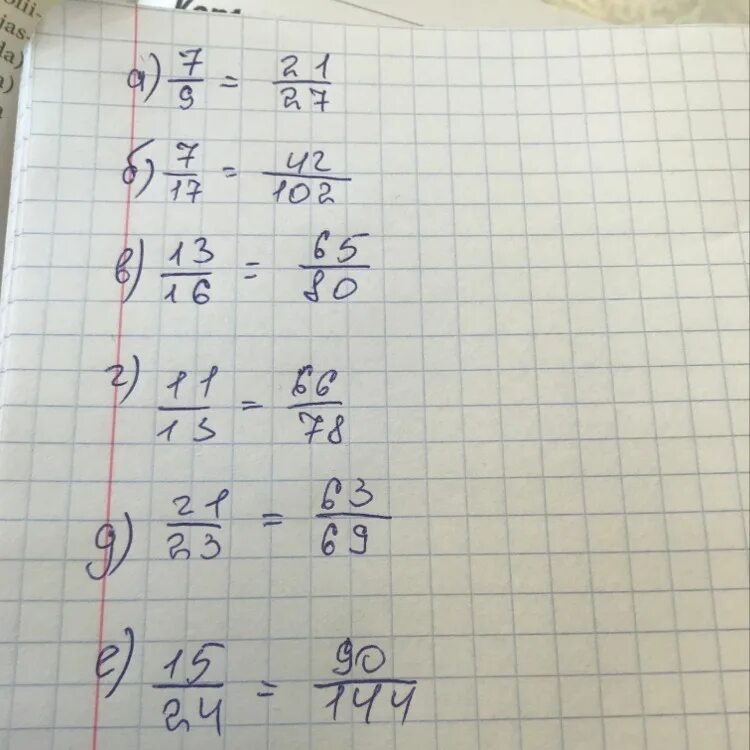 а) 7/9 = 21/27
б) 7/17 = 42/102
в) 13/16 = 65/80
г) 11/13 = 66/78
д) 21/23 = 63/69
е) 15/24 = 90/144